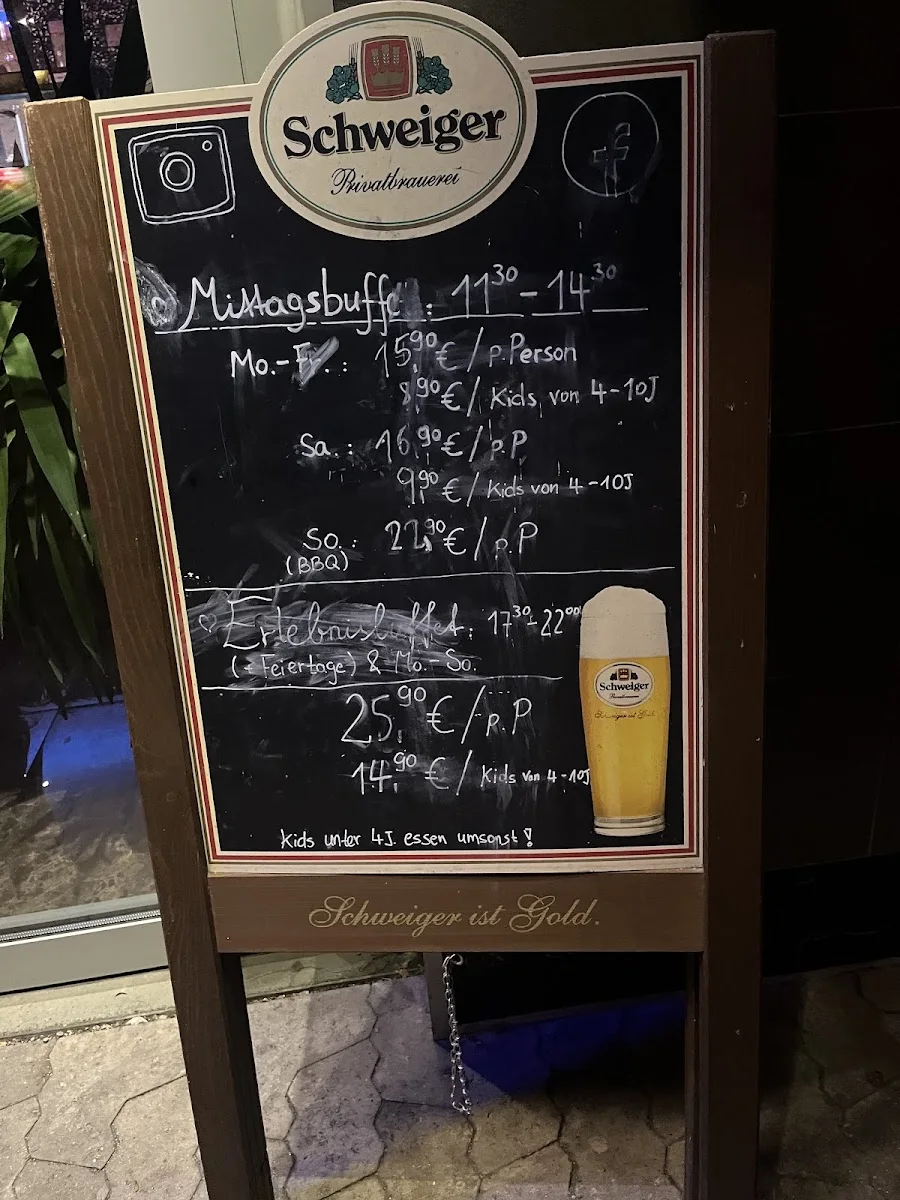 Schweiger
Privatbrauerei
Mittagsbuffe : 11³⁰ - 14³⁰
Mo.-Fr.: 15,⁹⁰ € / p. Person
8,⁹⁰ € / Kids von 4-10J
Sa.: 16,⁹⁰ € / p.P
9,⁹⁰ € / Kids von 4-10J
So.: 22,⁹⁰ € / p.P
(BBQ)
Erlebnisbuffet: 17³⁰-22⁰⁰
(+ Feiertage) & Mo.-So.
25,⁹⁰ € / p.P
14,⁹⁰ € / Kids von 4-10J
Kids unter 4J. essen umsonst!
Schweiger
Privatbrauerei
Schweiger ist Gold.
Schweiger ist Gold.